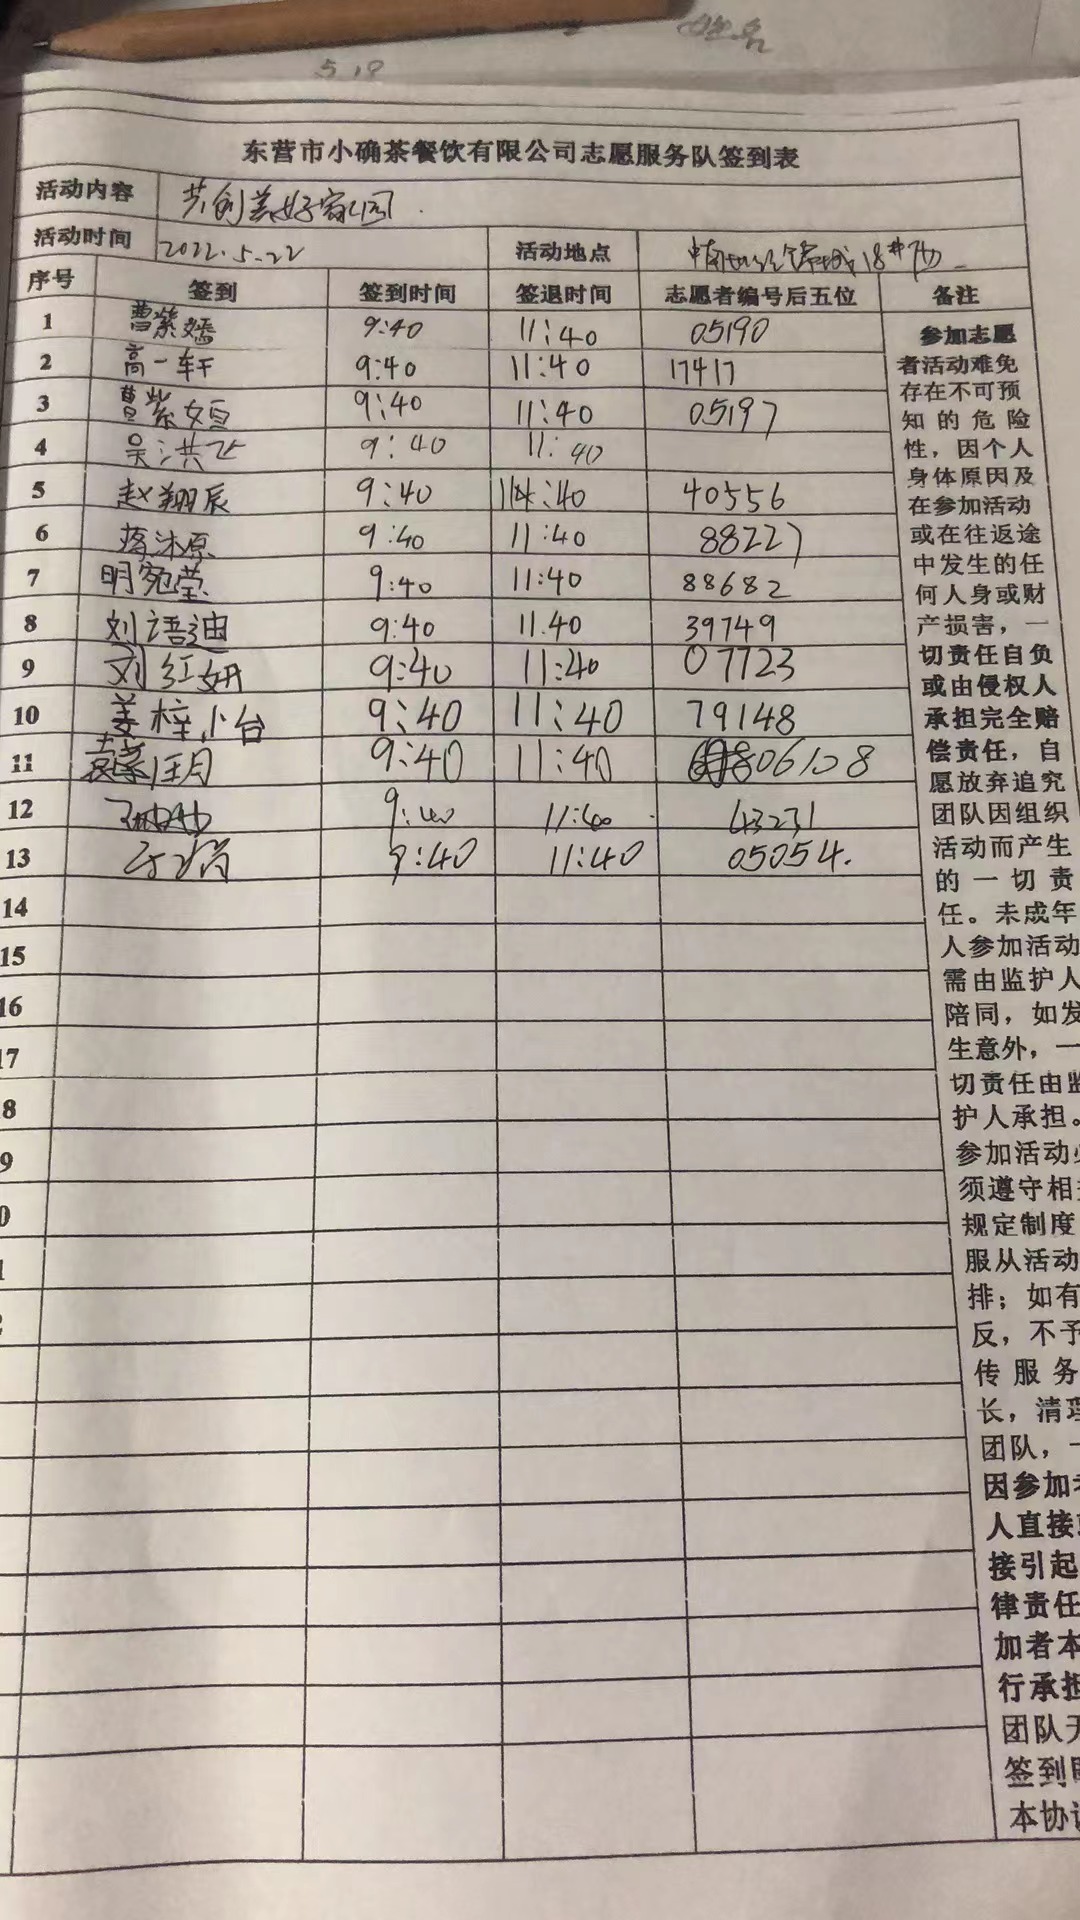 姓名
5.19
东营市小确茶餐饮有限公司志愿服务队签到表
活动内容 共创美好家园.
活动时间 2022.5.22 活动地点 18#
序号 签到 签到时间 签退时间 志愿者编号后五位 备注
1 曹紫嫣 9:40 11:40 05190
2 高一轩 9:40 11:40 17417
3 曹紫 9:40 11:40 05197
4 吴洪飞 9:40 11:40
5 赵翔辰 9:40 11:40 40556
6 蒋沐原 9:40 11:40 88227
7 明宛莹 9:40 11:40 88682
8 刘语迪 9:40 11.40 39749
9 刘红妍 9:40 11:40 07723
10 姜梓 9:40 11:40 79148
11 9:40 11:40 06108
12 9:40 11:40 43231
13 9:40 11:40 05054.
14
15
16
17
8
9
0
1
2
参加志愿
者活动难免
存在不可预
知的危险
性，因个人
身体原因及
在参加活动
或在往返途
中发生的任
何人身或财
产损害，一
切责任自负
或由侵权人
承担完全赔
偿责任，自
愿放弃追究
团队因组织
活动而产生
的一切责
任。未成年
人参加活动
需由监护人
陪同，如发
生意外，一
切责任由监
护人承担。
参加活动必
须遵守相
规定制度
服从活动
排；如有
反，不予
传服务
长，清理
团队，
因参加者
人直接
接引起
律责任
加者本
行承担
团队无
签到
本协议